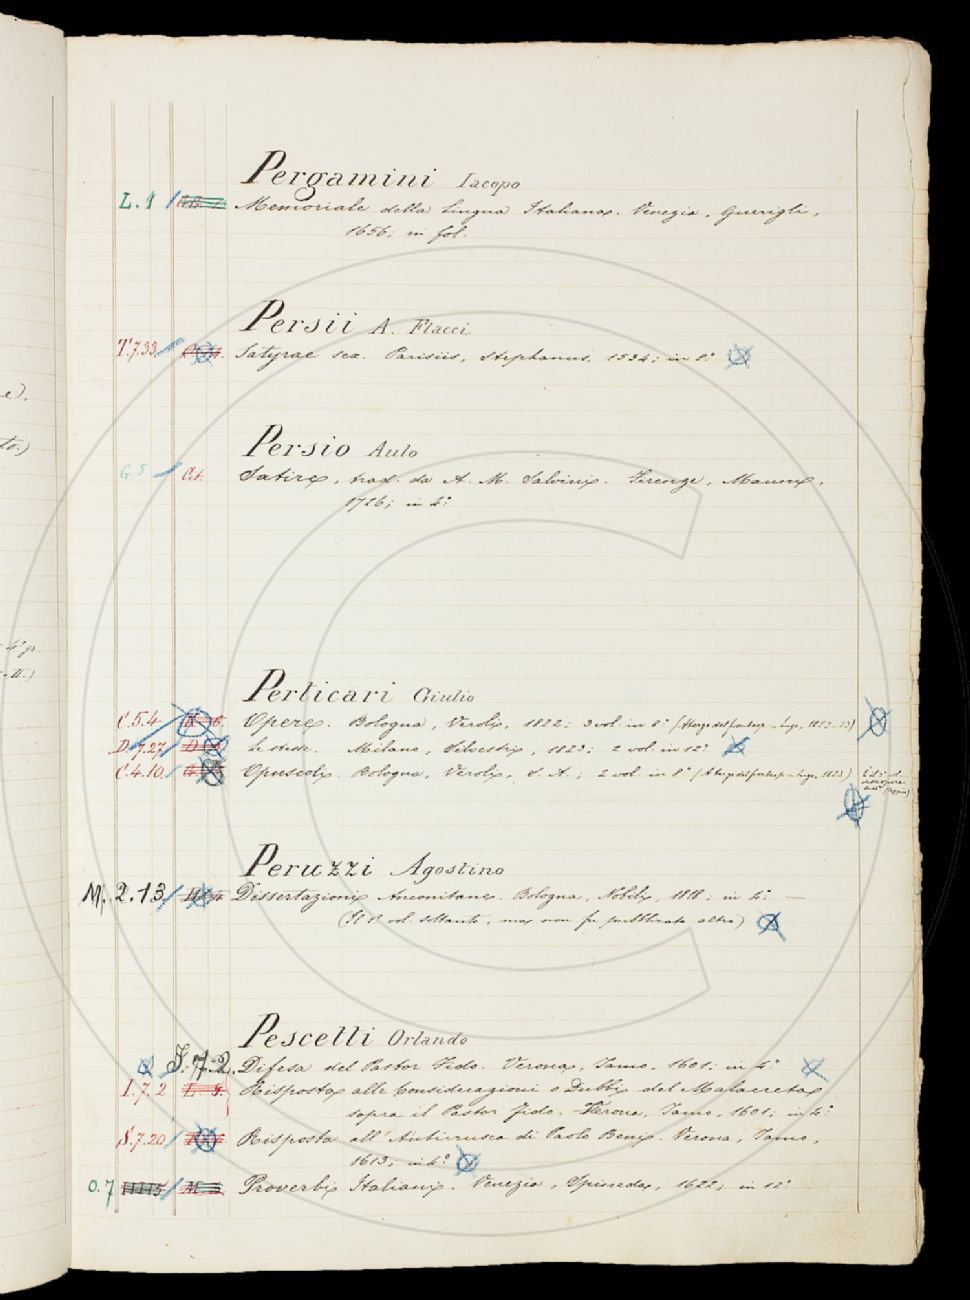 Pergamini Iacopo
L. 1 Memoriale della lingua Italiana. Venezia, Guerigli,
1656; in fol.
Persii A. Flacci
T.7.33. Satyrae sex. Parisiis, Stephanus, 1534; in 8.°
Persio Aulo
G. 5 Cit. Satire, trad. da A. M. Salvini. Firenze, Manni,
1726; in 4.°
Perticari Giulio
C.5.4 Opere. Bologna, Veroli, 1822; 3 vol. in 8.°
D.7.27. Le stesse. Milano, Silvestri, 1823; 2 vol. in 12.°
C.4.10. Opuscoli. Bologna, Veroli, S. A.; 2 vol. in 8.°
Peruzzi Agostino
M. 2.13 Dissertazioni Anconitane. Bologna, Nobili, 1818; in 4.° —
(Il 1.° vol. soltanto, ma non fu pubblicato altro)
Pescetti Orlando
I.7.2. Difesa del Pastor Fido. Verona, Tamo, 1601; in 4.°
I.7.2 Risposta alle Considerazioni o Dubbi del Malacreta
sopra il Pastor fido. Verona, Tamo, 1601; in 4.°
S.7.20 Risposta all'Anticrusca di Paolo Beni. Verona, Tamo,
1613; in 4.°
O.7 Proverbi Italiani. Venezia, Spineda, 1622; in 12.°